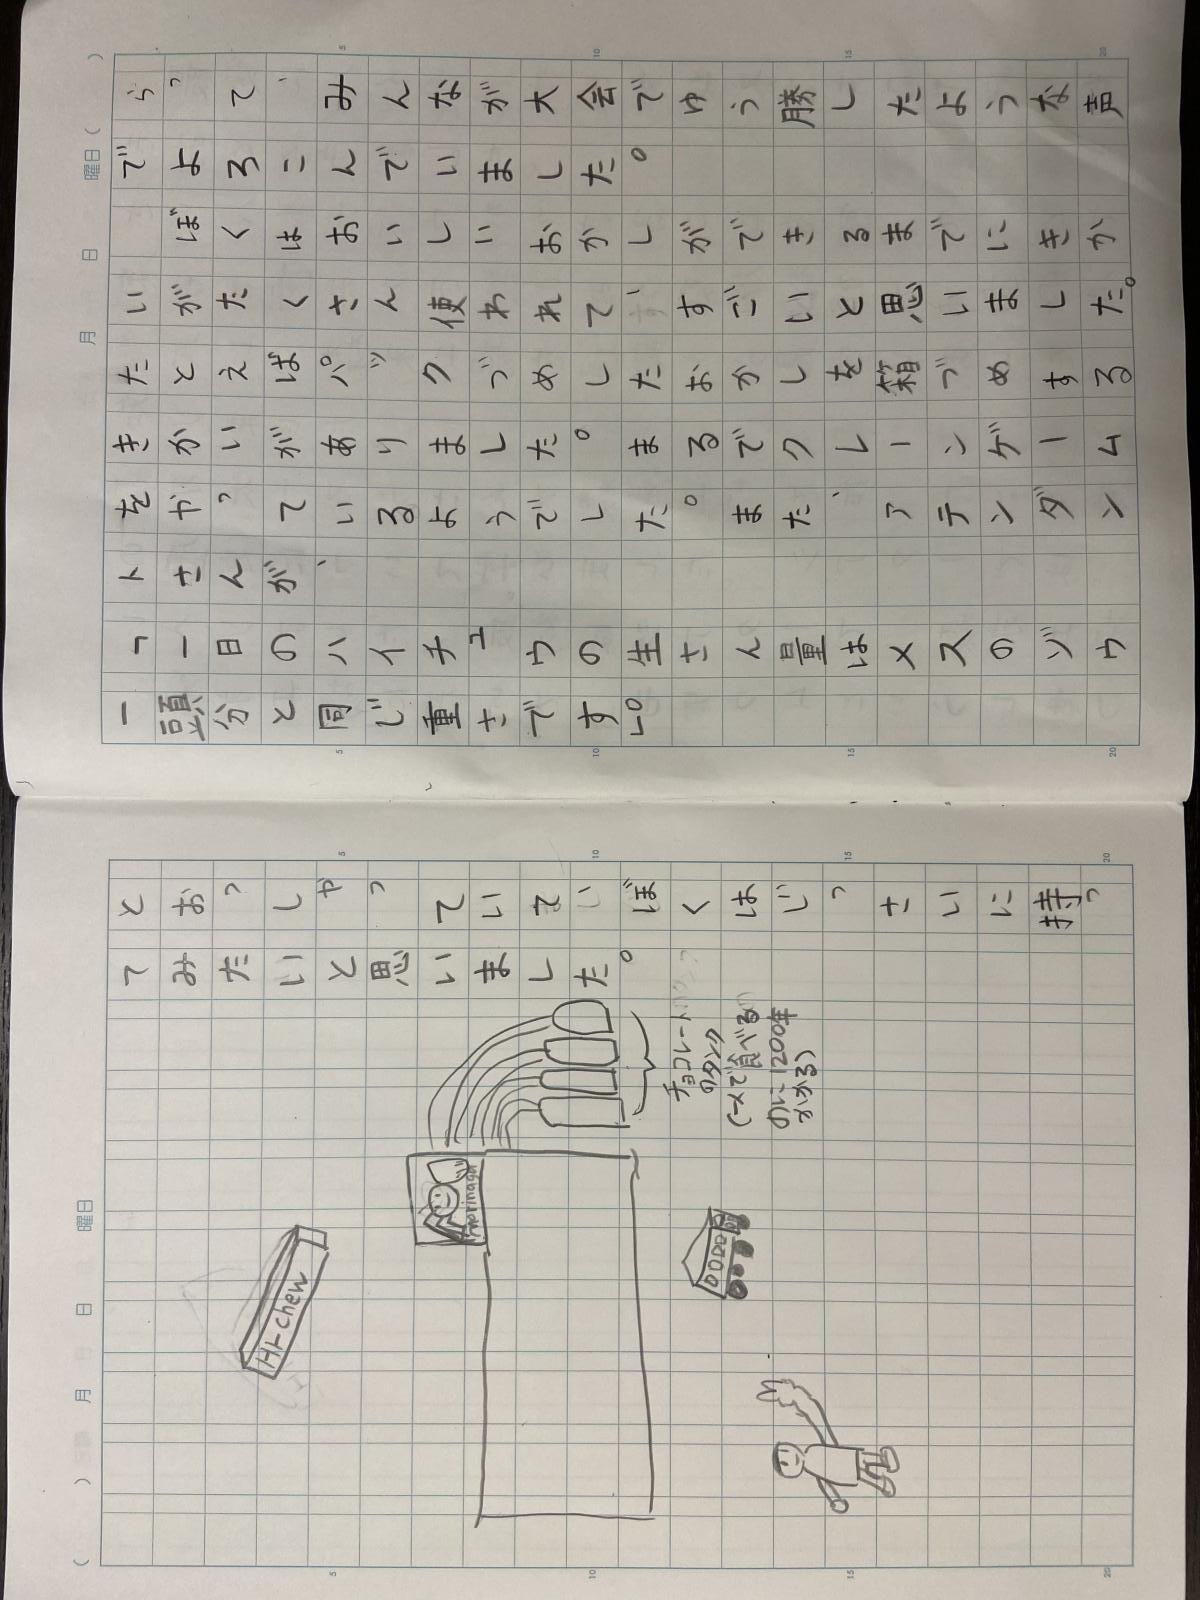 らって、みんなが大会でゆう勝したような声
でよろこんでいました。
ぼくはおいしいおかしができるまでにきか
いがたくさん使われて、すごいと思いました。
たとえばパックづめしたおかしを箱づめする
きかいがありました。まるでクレーンゲーム
をやっているようでした。また、アテンダン
トさんが、
「一日のハイチュウの生さん量はメスのゾウ
一頭分と同じ重さです。」
とおっしゃっていて、ぼくはじっさいに持っ
てみたいと思いました。
チョコレート
のタンク
(一人で食べる
のに1200年
かかる)
morinaga
Hi-chew
月 日 曜日 ( )
月 日 曜日 ( )
5
10
15
20
5
10
15
20
5
10
15
20
5
10
15
20